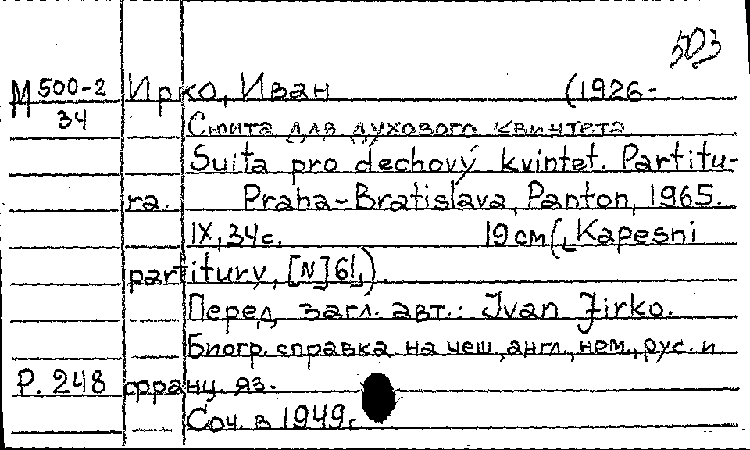 503
М 500-2 Ирко, Иван (1926-
34
Сюита для духового квинтета
Suita pro dechový kvintet. Partitu-
ra. Praha-Bratislava, Panton, 1965.
IX, 34 с. 19 см (Kapesní
partitury, [N] 61).
Перед загл. авт.: Ivan Jirko.
Биогр. справка на чеш., англ., нем., рус. и
Р. 248 франц. яз.
Соч. в 1949 г.